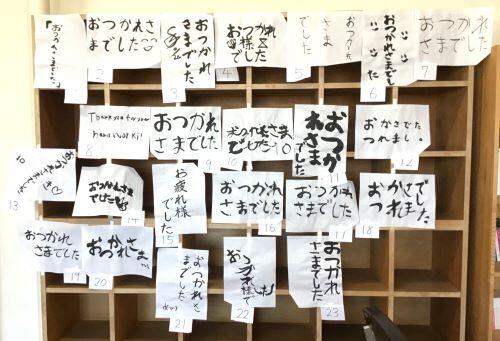 「おつかれ
さまでした」
1
おつかれさ
までした
2
おつかれ
さまでした
3
おつかれ
つ様で
した
4
おつかれ
さま
でした
5
おつかれさまでした
6
おつかれ
さまでした
7
Thank you for your
hard work!
8
おつかれ
さまでした
9
10
おつか
れさま
でした
11
おかさでた
つれまし。
12
13
おつかれさま
でした
14
お疲れ様
でした
15
おつかれ
さまでした
16
おつかれ
さまでした
17
おかさでし
つれまた
18
おつかれ
さまでした
19
おつかれさま
20
おつかれさ
までした
21
おつかれ様でした
22
おつかれ
さまでした
23